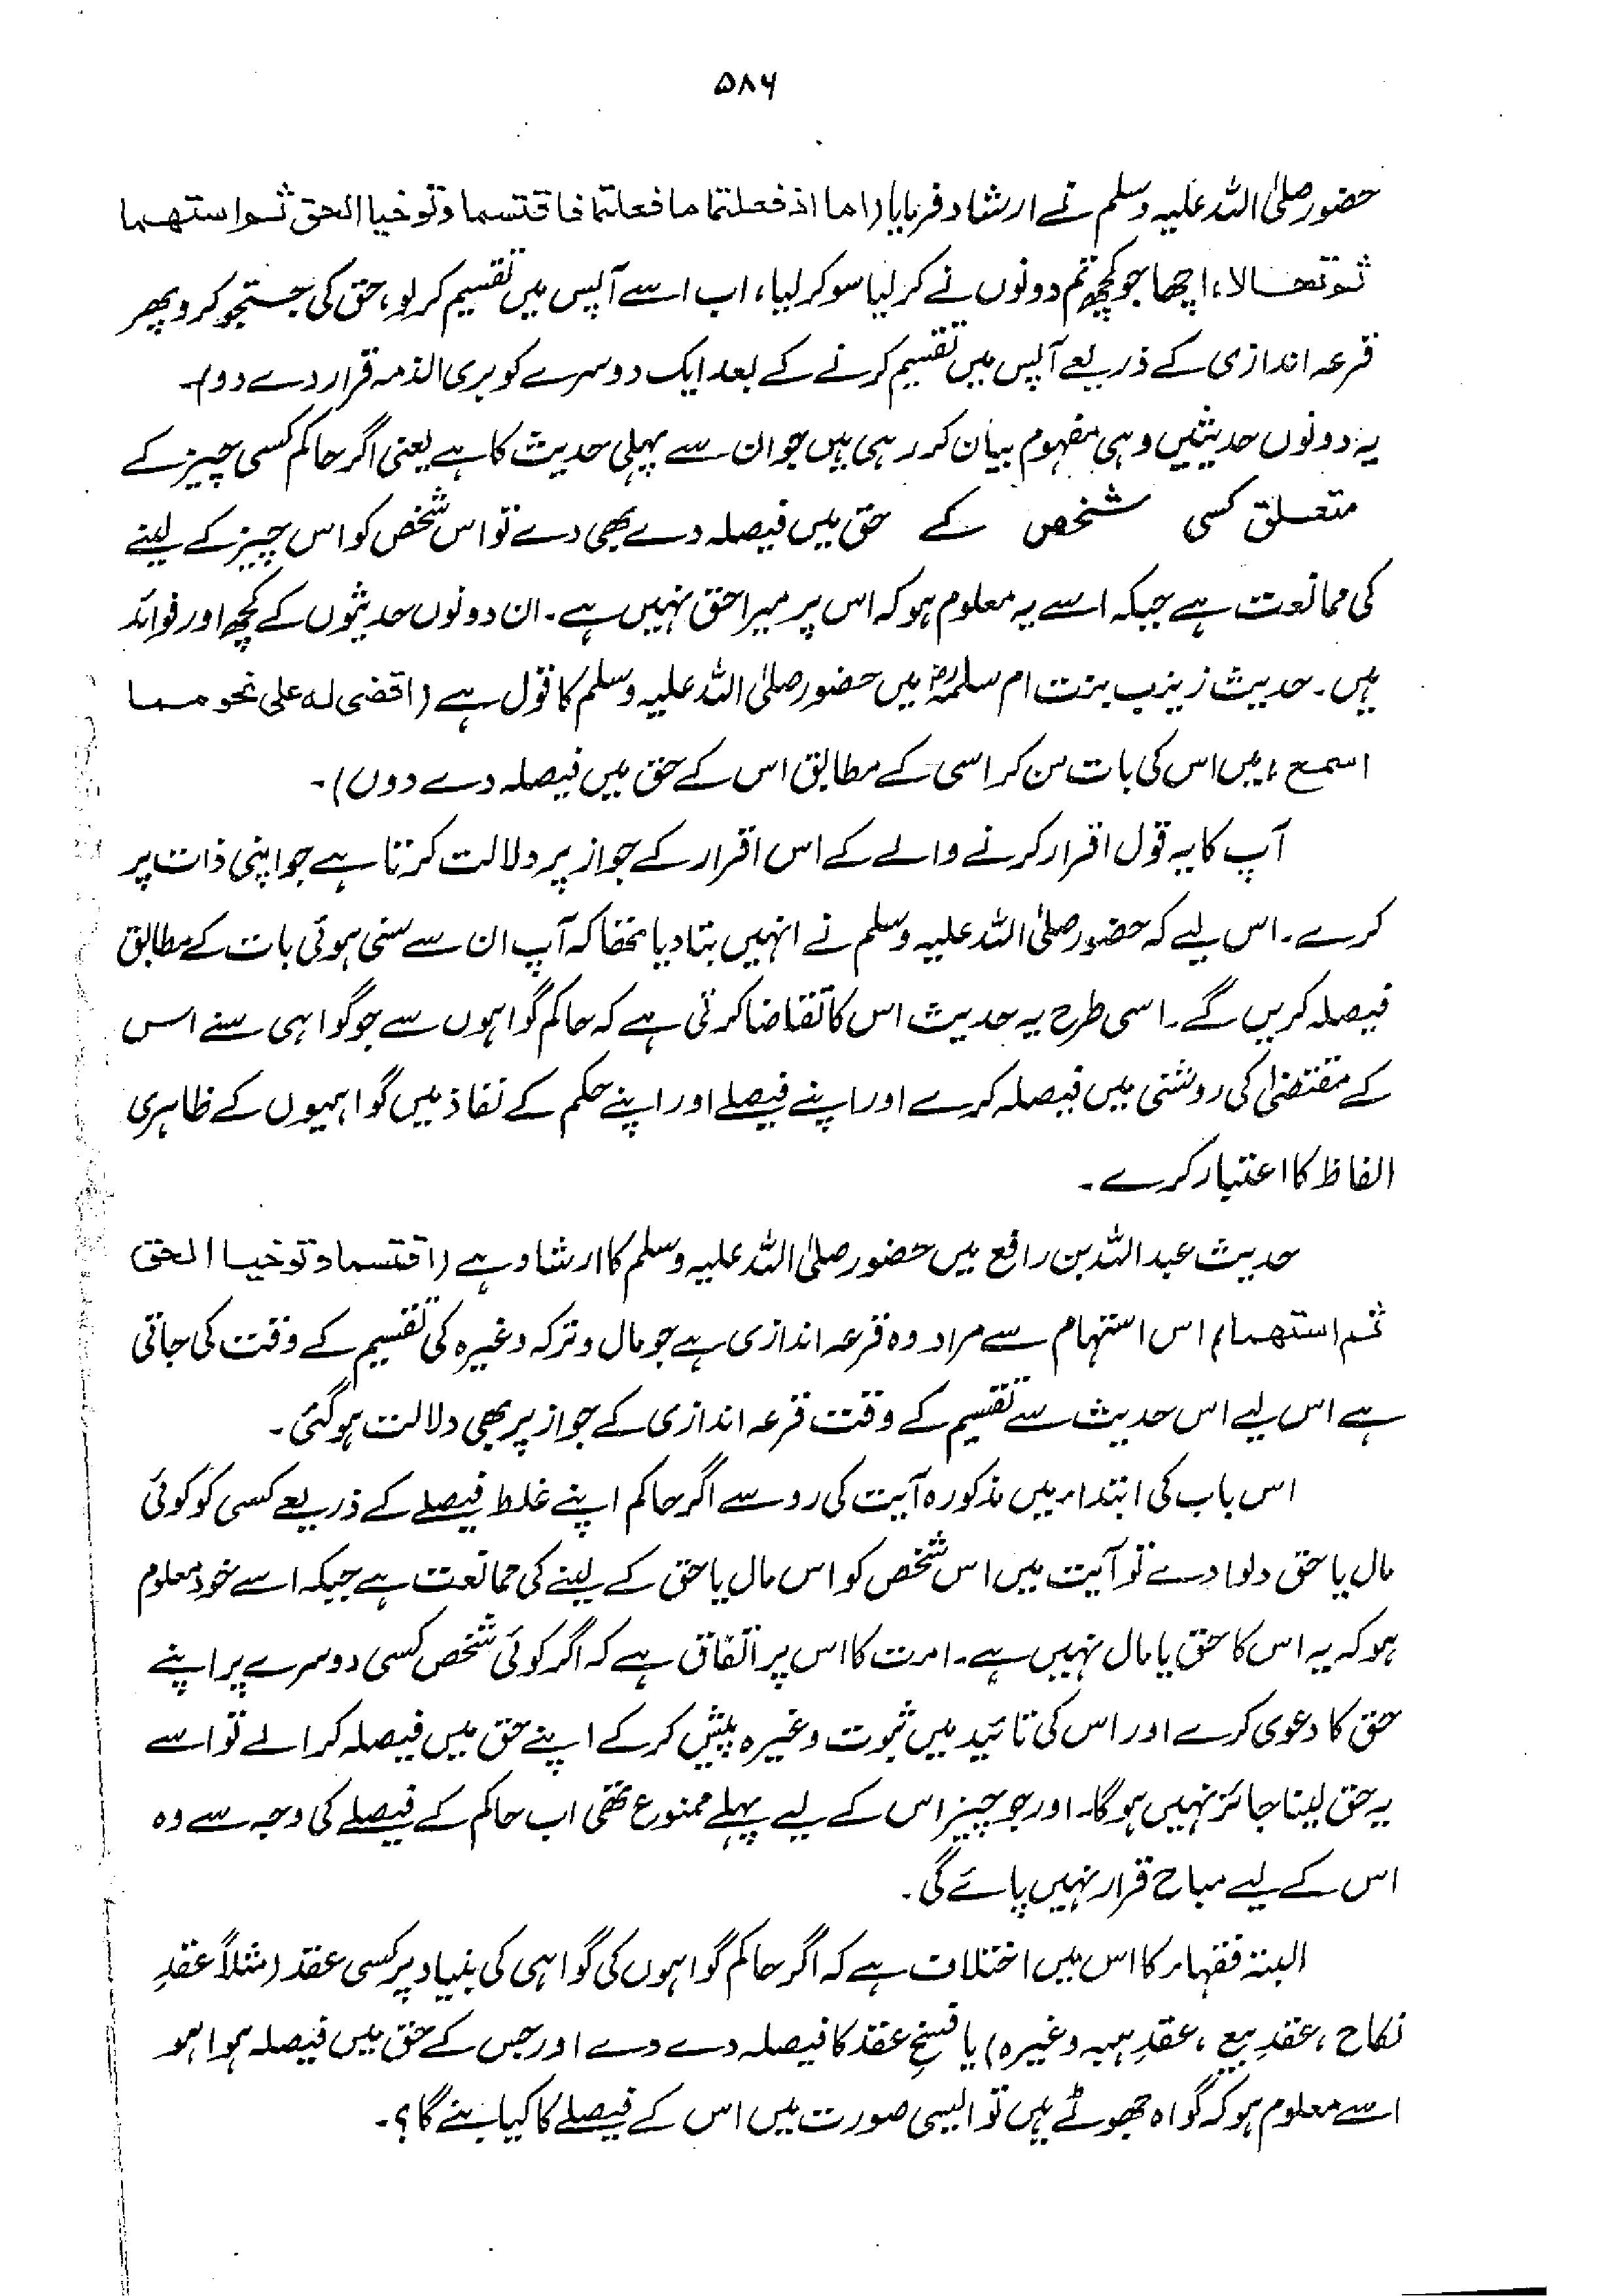 ۵۸۶
حضور صلی اللہ علیہ وسلم نے ارشاد فرمایا (اما اذ فعلتما ما فعلتما فاقتسما وتوخیا الحق ثم استهما
ثم تحالا، اچھا جو کچھ تم دونوں نے کر لیا سو کر لیا، اب اسے آپس میں تقسیم کر لو، حق کی جستجو کرو پھر
قرعہ اندازی کے ذریعے آپس میں تقسیم کرنے کے بعد ایک دوسرے کو بری الذمہ قرار دے دو)۔
یہ دونوں حدیثیں وہی مفہوم بیان کر رہی ہیں جو ان سے پہلی حدیث کا ہے یعنی اگر حاکم کسی چیز کے
متعلق کسی شخص کے حق میں فیصلہ دے بھی دے تو اس شخص کو اس چیز کے لینے
کی ممانعت ہے جبکہ اسے یہ معلوم ہو کہ اس پر میرا حق نہیں ہے۔ ان دونوں حدیثوں کے کچھ اور فوائد
ہیں۔ حدیث زینب بنت ام سلمہؓ میں حضور صلی اللہ علیہ وسلم کا قول ہے (اقضی له علی نحو مما
اسمع، میں اس کی بات سن کر اسی کے مطابق اس کے حق میں فیصلہ دے دوں)۔
آپ کا یہ قول اقرار کرنے والے کے اس اقرار کے جواز پر دلالت کرتا ہے جو اپنی ذات پر
کرے۔ اس لیے کہ حضور صلی اللہ علیہ وسلم نے انہیں بتا دیا تھا کہ آپ ان سے سنی ہوئی بات کے مطابق
فیصلہ کریں گے۔ اسی طرح یہ حدیث اس کا تقاضا کرتی ہے کہ حاکم گواہوں سے جو گواہی سنے اس
کے مقتضیٰ کی روشنی میں فیصلہ کرے اور اپنے فیصلے اور اپنے حکم کے نفاذ میں گواہیوں کے ظاہری
الفاظ کا اعتبار کرے۔
حدیث عبد اللہ بن رافع میں حضور صلی اللہ علیہ وسلم کا ارشاد ہے (اقتسما وتوخیا الحق
ثم استهما) اس استہام سے مراد وہ قرعہ اندازی ہے جو مال و ترکہ وغیرہ کی تقسیم کے وقت کی جاتی
ہے اس لیے اس حدیث سے تقسیم کے وقت قرعہ اندازی کے جواز پر بھی دلالت ہو گئی۔
اس باب کی ابتداء میں مذکورہ آیت کی رو سے اگر حاکم اپنے غلط فیصلے کے ذریعے کسی کو کوئی
مال یا حق دلوا دے تو آیت میں اس شخص کو اس مال یا حق کے لینے کی ممانعت ہے جبکہ اسے خود معلوم
ہو کہ یہ اس کا حق یا مال نہیں ہے۔ امت کا اس پر اتفاق ہے کہ اگر کوئی شخص کسی دوسرے پر اپنے
حق کا دعوی کرے اور اس کی تائید میں ثبوت وغیرہ پیش کر کے اپنے حق میں فیصلہ کرا لے تو اسے
یہ حق لینا جائز نہیں ہو گا۔ اور جو چیز اس کے لیے پہلے ممنوع تھی اب حاکم کے فیصلے کی وجہ سے وہ
اس کے لیے مباح قرار نہیں پائے گی۔
البتہ فقہاء کا اس میں اختلاف ہے کہ اگر حاکم گواہوں کی گواہی کی بنیاد پر کسی عقد (مثلاً عقدِ
نکاح، عقدِ بیع، عقدِ ہبہ وغیرہ) یا فسخِ عقد کا فیصلہ دے دے اور جس کے حق میں فیصلہ ہوا ہو
اسے معلوم ہو کہ گواہ جھوٹے ہیں تو ایسی صورت میں اس کے فیصلے کا کیا بنے گا؟۔